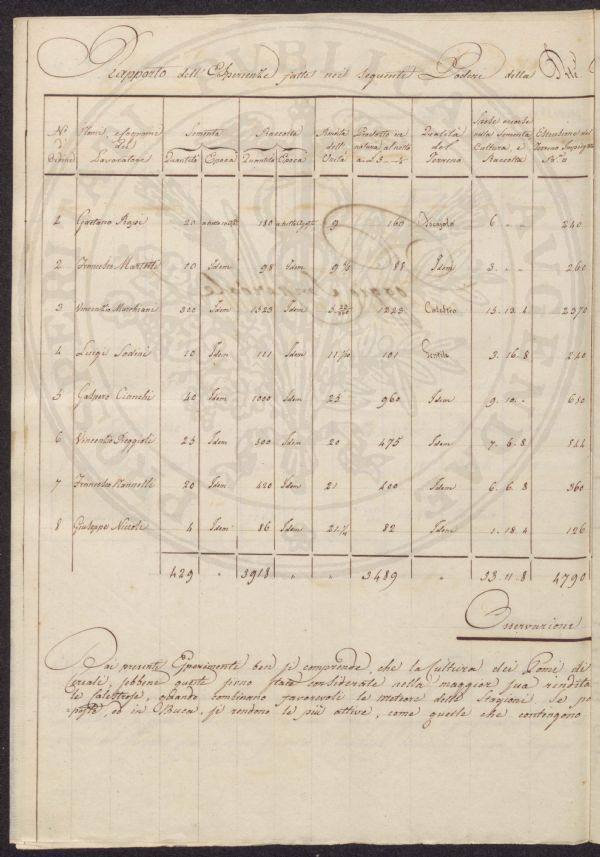 Rapporto dell' Esperienze fatte nei seguenti Poderi della
N.º d' Ordine | Nomi, e Cognomi del Lavoratore | Sementa Quantità | Epoca | Raccolta Quantità | Epoca | Rendita dell' Unità | Prodotto in natura al netto | Qualità del Terreno | Spese occorse nella Sementa Cultura, e Raccolta | Estensione del Terreno Impiegato
1 Gaetano Rossi 20 180 9 160 6 240
2 Francesco Martelli 10 Idem 98 Idem 9 4/5 88 Idem 3 260
3 Vincenzio Marchiani 300 Idem 1523 Idem 1223 15. 13. 4 2370
4 Luigi Sodini 10 Idem 111 Idem 11 1/10 101 Gentile 3. 16. 8 240
5 Gaspero Cianchi 40 Idem 1000 Idem 25 960 Idem 9. 10. 650
6 Vincenzio Reggioli 25 Idem 500 Idem 20 475 Idem 7. 6. 8 544
7 Francesco Nannelli 20 Idem 420 Idem 21 400 Idem 6. 6. 8 360
8 Giuseppe Niccoli 4 Idem 86 Idem 21 1/2 82 Idem 1. 18. 4 126
429 " 3918 " " 3489 " 53. 11. 8 4790
Osservazione
Dai presenti Esperimenti ben si comprende, che la Cultura dei Pomi di
cereale, sebbene queste sieno state considerate nella maggior sua rendita
le galestrose, quando combinano favorevoli le meteore delle Stagione. Se po
ed in Buca, si rendono le più attive, come quelle che contengono